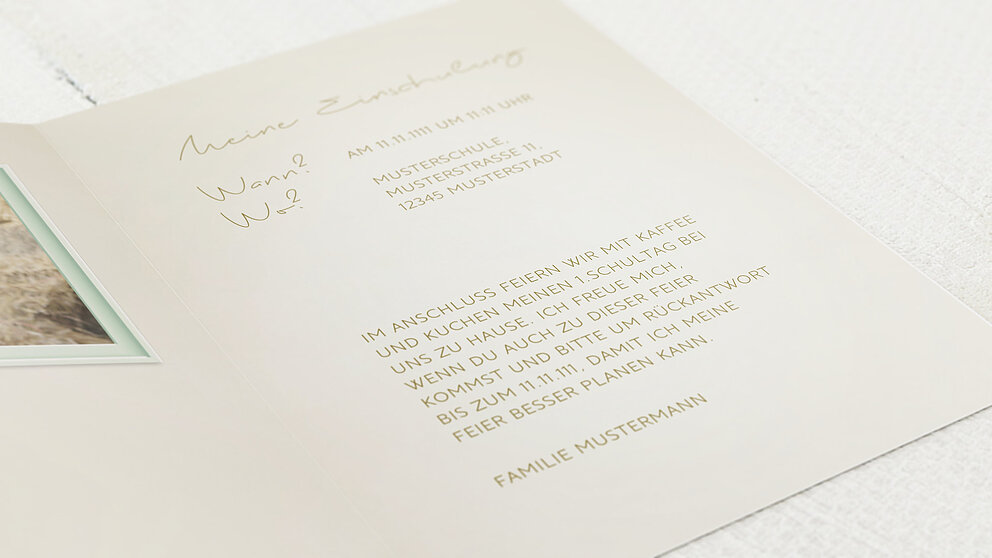 Meine Einschulung
Wann? AM 11.11.1111 UM 11:11 UHR
Wo? MUSTERSCHULE,
MUSTERSTRASSE 11,
12345 MUSTERSTADT
IM ANSCHLUSS FEIERN WIR MIT KAFFEE
UND KUCHEN MEINEN 1.SCHULTAG BEI
UNS ZU HAUSE. ICH FREUE MICH,
WENN DU AUCH ZU DIESER FEIER
KOMMST UND BITTE UM RÜCKANTWORT
BIS ZUM 11.11.111, DAMIT ICH MEINE
FEIER BESSER PLANEN KANN.
FAMILIE MUSTERMANN